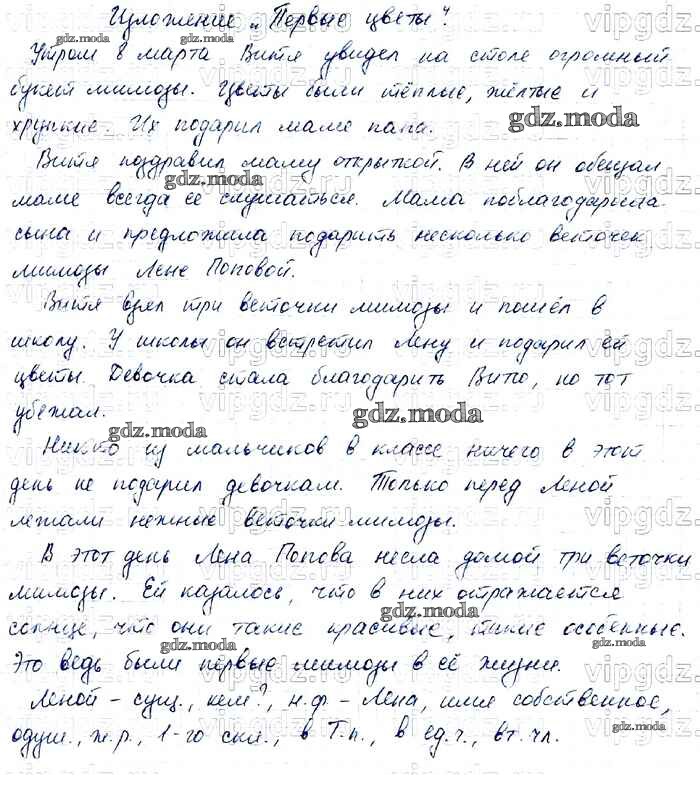 Изложение „Первые цветы".
Утром 8 марта Витя увидел на столе огромный
букет мимозы. Цветы были тёплые, жёлтые и
хрупкие. Их подарил маме папа.
Витя поздравил маму открыткой. В ней он обещал
маме всегда её слушаться. Мама поблагодарила
сына и предложила подарить несколько веточек
мимозы Лене Поповой.
Витя взял три веточки мимозы и пошёл в
школу. У школы он встретил Лену и подарил ей
цветы. Девочка стала благодарить Витю, но тот
убежал.
Никто из мальчиков в классе ничего в этот
день не подарил девочкам. Только перед Леной
лежали нежные веточки мимозы.
В этот день Лена Попова несла домой три веточки
мимозы. Ей казалось, что в них отражается
солнце, что они такие красивые, такие особенные.
Это ведь были первые мимозы в её жизни.
Леной – сущ., кем?, н.ф. – Лена, имя собственное,
одуш., ж.р., 1-го скл., в Т.п., в ед.ч., вт. чл.
gdz.moda
vipgdz.ru